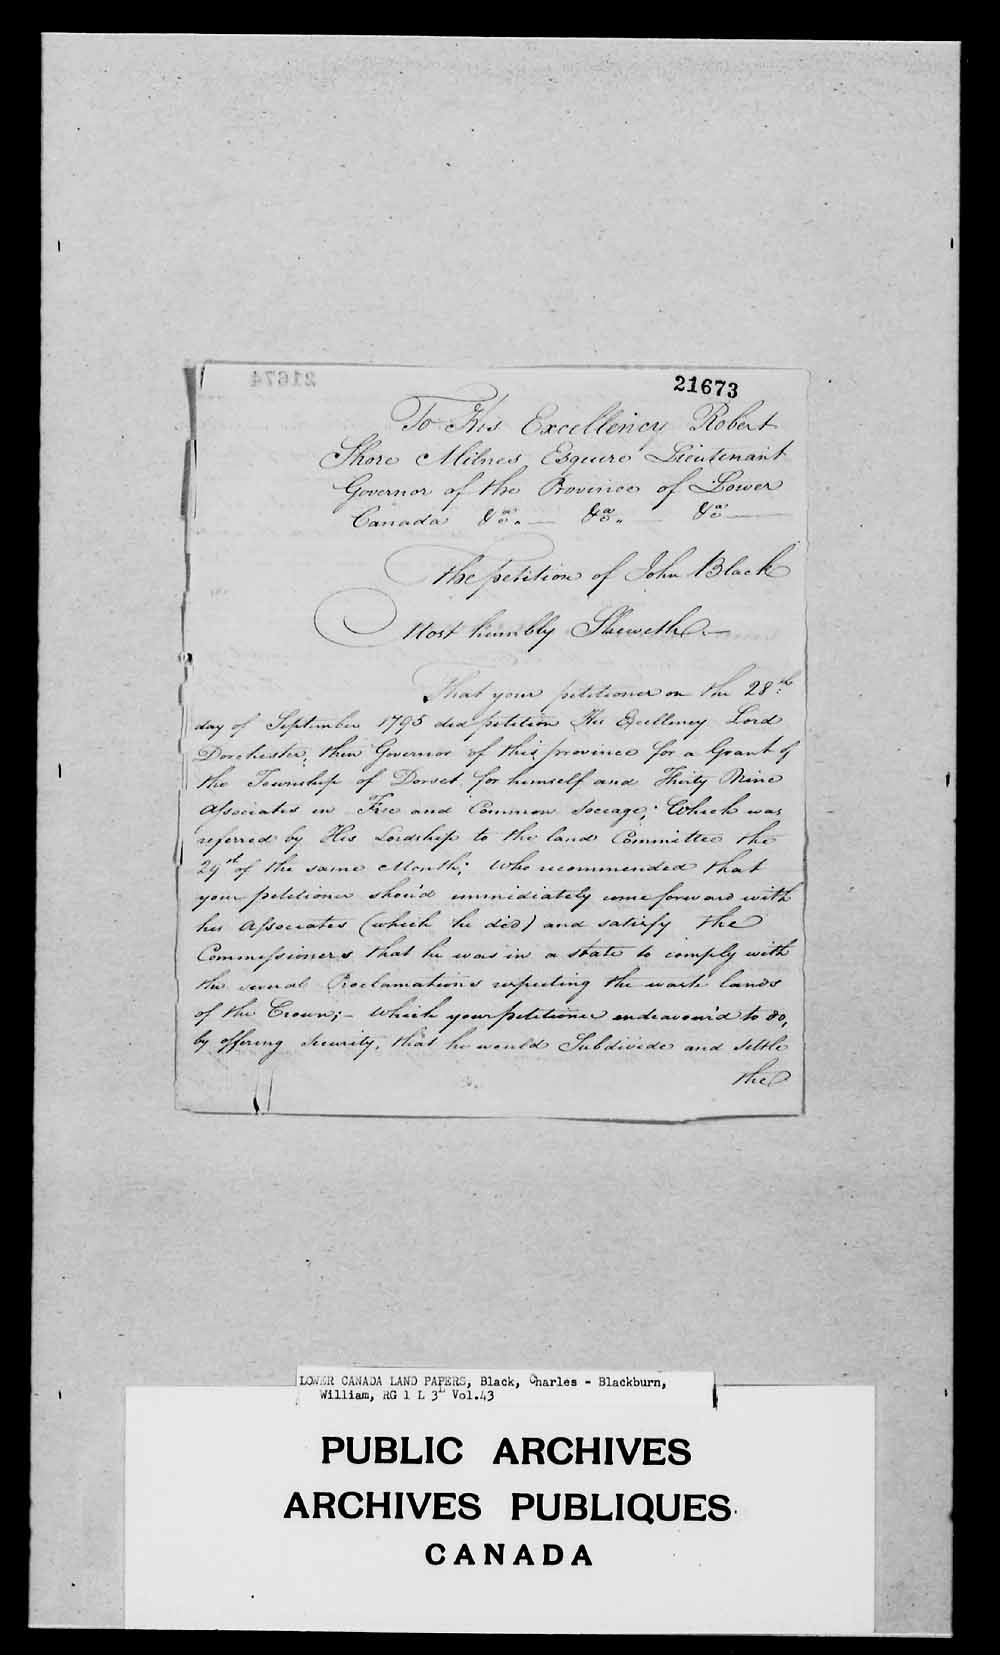 21674
21673
To His Excellency Robert
Shore Milnes Esquire Lieutenant
Governor of the Province of Lower
Canada &ca.— &ca.— &ca—
The petition of John Black
Most humbly Sheweth.—
That your petitioner on the 28th
day of September 1795 did petition His Excellency Lord
Dorchester, then Governor of this province for a Grant of
the Township of Dorset for himself and Thirty Nine
Associates in Free and Common Soccage; Which was
referred by His Lordship to the land Committee the
29st of the same Month; Who recommended that
your petitioner shou'd immidiately come forward with
his Associates (which he did) and satisfy the
Commissioners that he was in a state to comply with
the several Proclamations respecting the waste lands
of the Crown;— Which your petitioner endeavour'd to do,
by offering security, that he would Subdivide and settle
the
LOWER CANADA LAND PAPERS, Black, Charles - Blackburn,
William, RG 1 L 3L Vol.43
PUBLIC ARCHIVES
ARCHIVES PUBLIQUES
CANADA